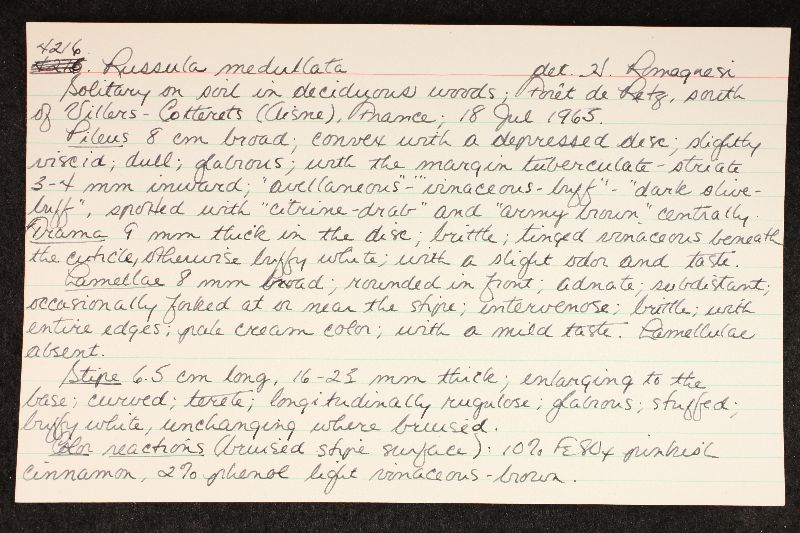 4216
4216. Russula medullata det. H. Romagnesi
Solitary on soil in deciduous woods; Forêt de Retz, south
of Villers-Cotterets (Aisne), France; 18 Jul 1963.
Pileus 8 cm broad; convex with a depressed disc; slightly
viscid; dull; glabrous; with the margin tuberculate-striate
3-4 mm inward; "avellaneous"-"vinaceous-buff"-"dark olive-
buff", spotted with "citrine-drab" and "army brown" centrally.
Trama 9 mm thick in the disc; brittle; tinged vinaceous beneath
the cuticle, otherwise buffy white; with a slight odor and taste.
Lamellae 8 mm broad; rounded in front; adnate; subdistant;
occasionally forked at or near the stipe; intervenose; brittle; with
entire edges; pale cream color; with a mild taste. Lamellulae
absent.
Stipe 6.5 cm long, 16-23 mm thick; enlarging to the
base; curved; terete; longitudinally rugulose; glabrous; stuffed;
buffy white, unchanging where bruised.
Color reactions (bruised stipe surface): 10% FeSO4 pinkish
cinnamon, 2% phenol light vinaceous-brown.